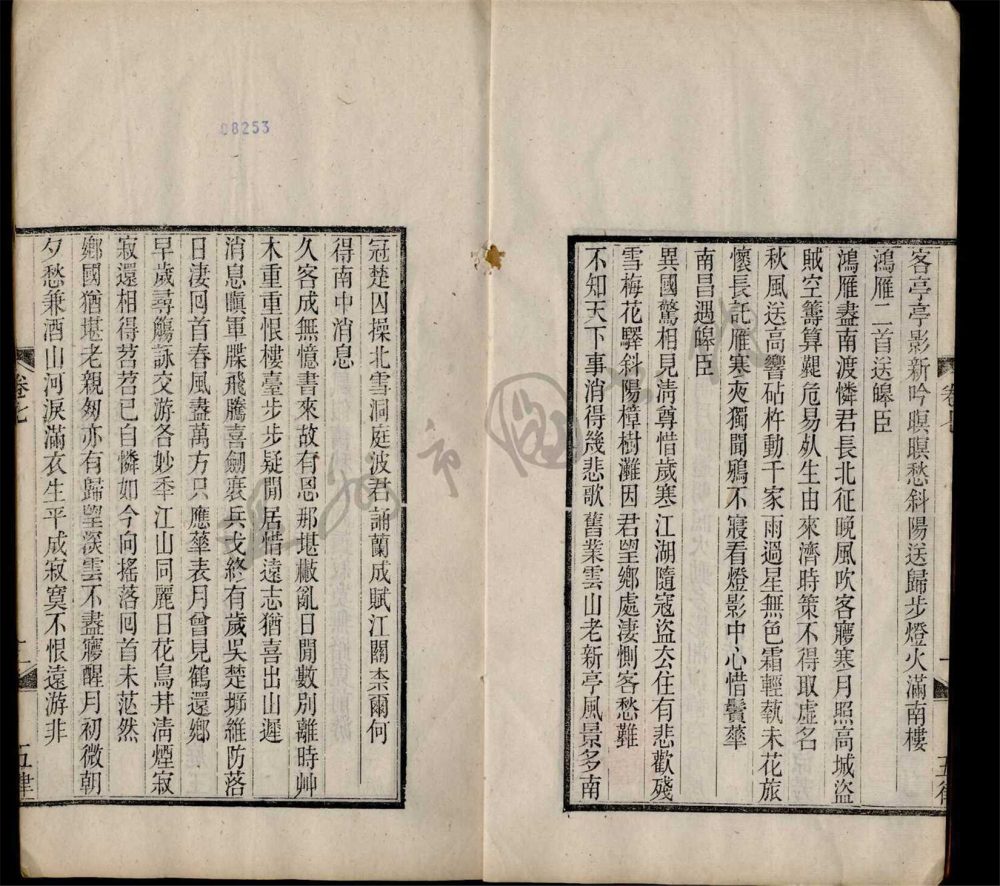 客亭亭影新吟暝暝愁斜陽送歸步燈火滿南樓
鴻雁二首送皞臣
鴻雁盡南渡憐君長北征晚風吹客寢寒月照高城盜
賊空籌算艱危易死生由來濟時策不得取虛名
秋風送高響砧杵動千家雨過星無色霜輕埶未花旅
懷長託雁寒夾獨聞鴉不寢看燈影中心惜鬢華
南昌遇皞臣
異國驚相見淸尊惜歲寒江湖隨寇盜厺住有悲歡殘
雪梅花驛斜陽樟樹灘因君望鄉處淒惻客愁難
不知天下事消得幾悲歌舊業雲山老新亭風景多南
卷七
五律
冠楚囚操北雪洞庭波君誦蘭成賦江關柰爾何
得南中消息
久客成無憶書來故有恩那堪觀亂日閒數別離時艸
木重重恨樓臺步步疑閒居惜遠志猶喜出山遲
消息瞋軍牒飛騰喜劒裹兵戈終有歲吳楚塀維防落
日淒回首春風盡萬方只應華表月曾見鶴還鄉
早歲尋觴詠交游各妙秊江山同麗日花鳥幷淸煙寂
寂還相得苕苕已自憐如今向搖落回首未茫然
鄉國猶堪老親匆亦有歸望深雲不盡寢醒月初微朝
夕愁兼酒山河淚滿衣生平成寂寞不恨遠游非
卷七
十一
五律
08253